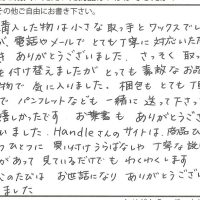 その他ご自由にお書き下さい。
購入した物は小さな取っ手とワックスでし
が、電話やメールでとても丁寧に対応いただ
き ありがとうございました。さっそく 取っ
を付け替えましたが とっても素敵なお品
物で 気に入りました。梱包も とても丁
で パンフレットなども 一緒に 送って下さっ
嬉しかったです お葉書も ありがとうござ
いました。Handleさんのサイトは、商品ひ
つひとつに 裏付けうらばなしや 丁寧な説
があって 見ているだけでも わくわくします
このたびは お世話になり ありがとうござい
ました